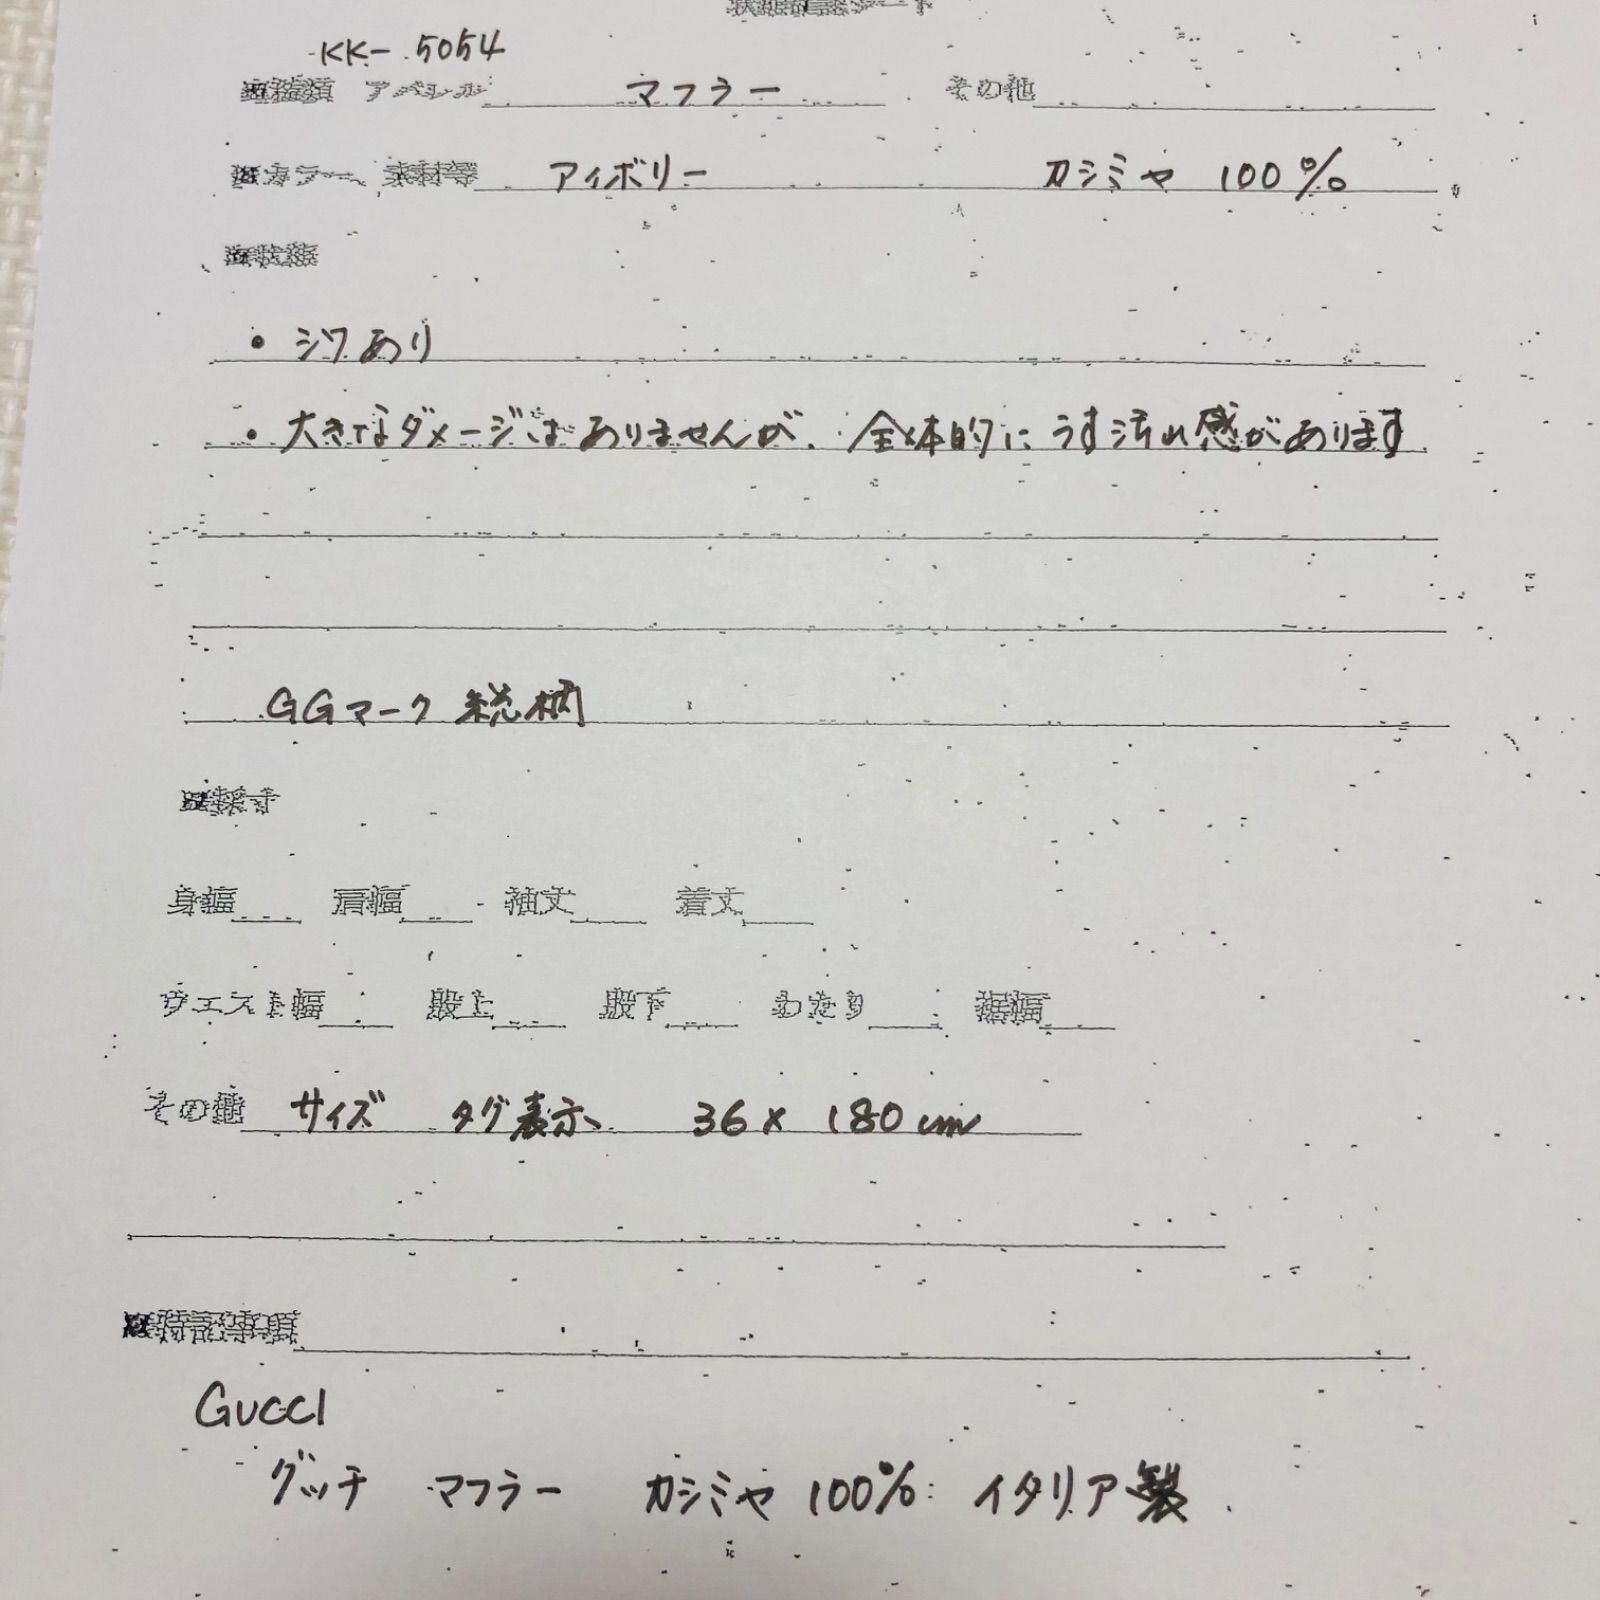 KK- 5054
■種類 アパレル マフラー その他
■カラー、素材等 アイボリー カシミヤ 100%
■状態
・シワあり
・大きなダメージはありませんが、全体的にうす汚れ感があります
GGマーク 総柄
■採寸
身幅 肩幅 袖丈 着丈
ウエスト幅 股上 股下 わたり 裾幅
その他 サイズ タグ表示、 36 x 180 cm
■特記事項
GUCCI
グッチ マフラー カシミヤ 100% イタリア製